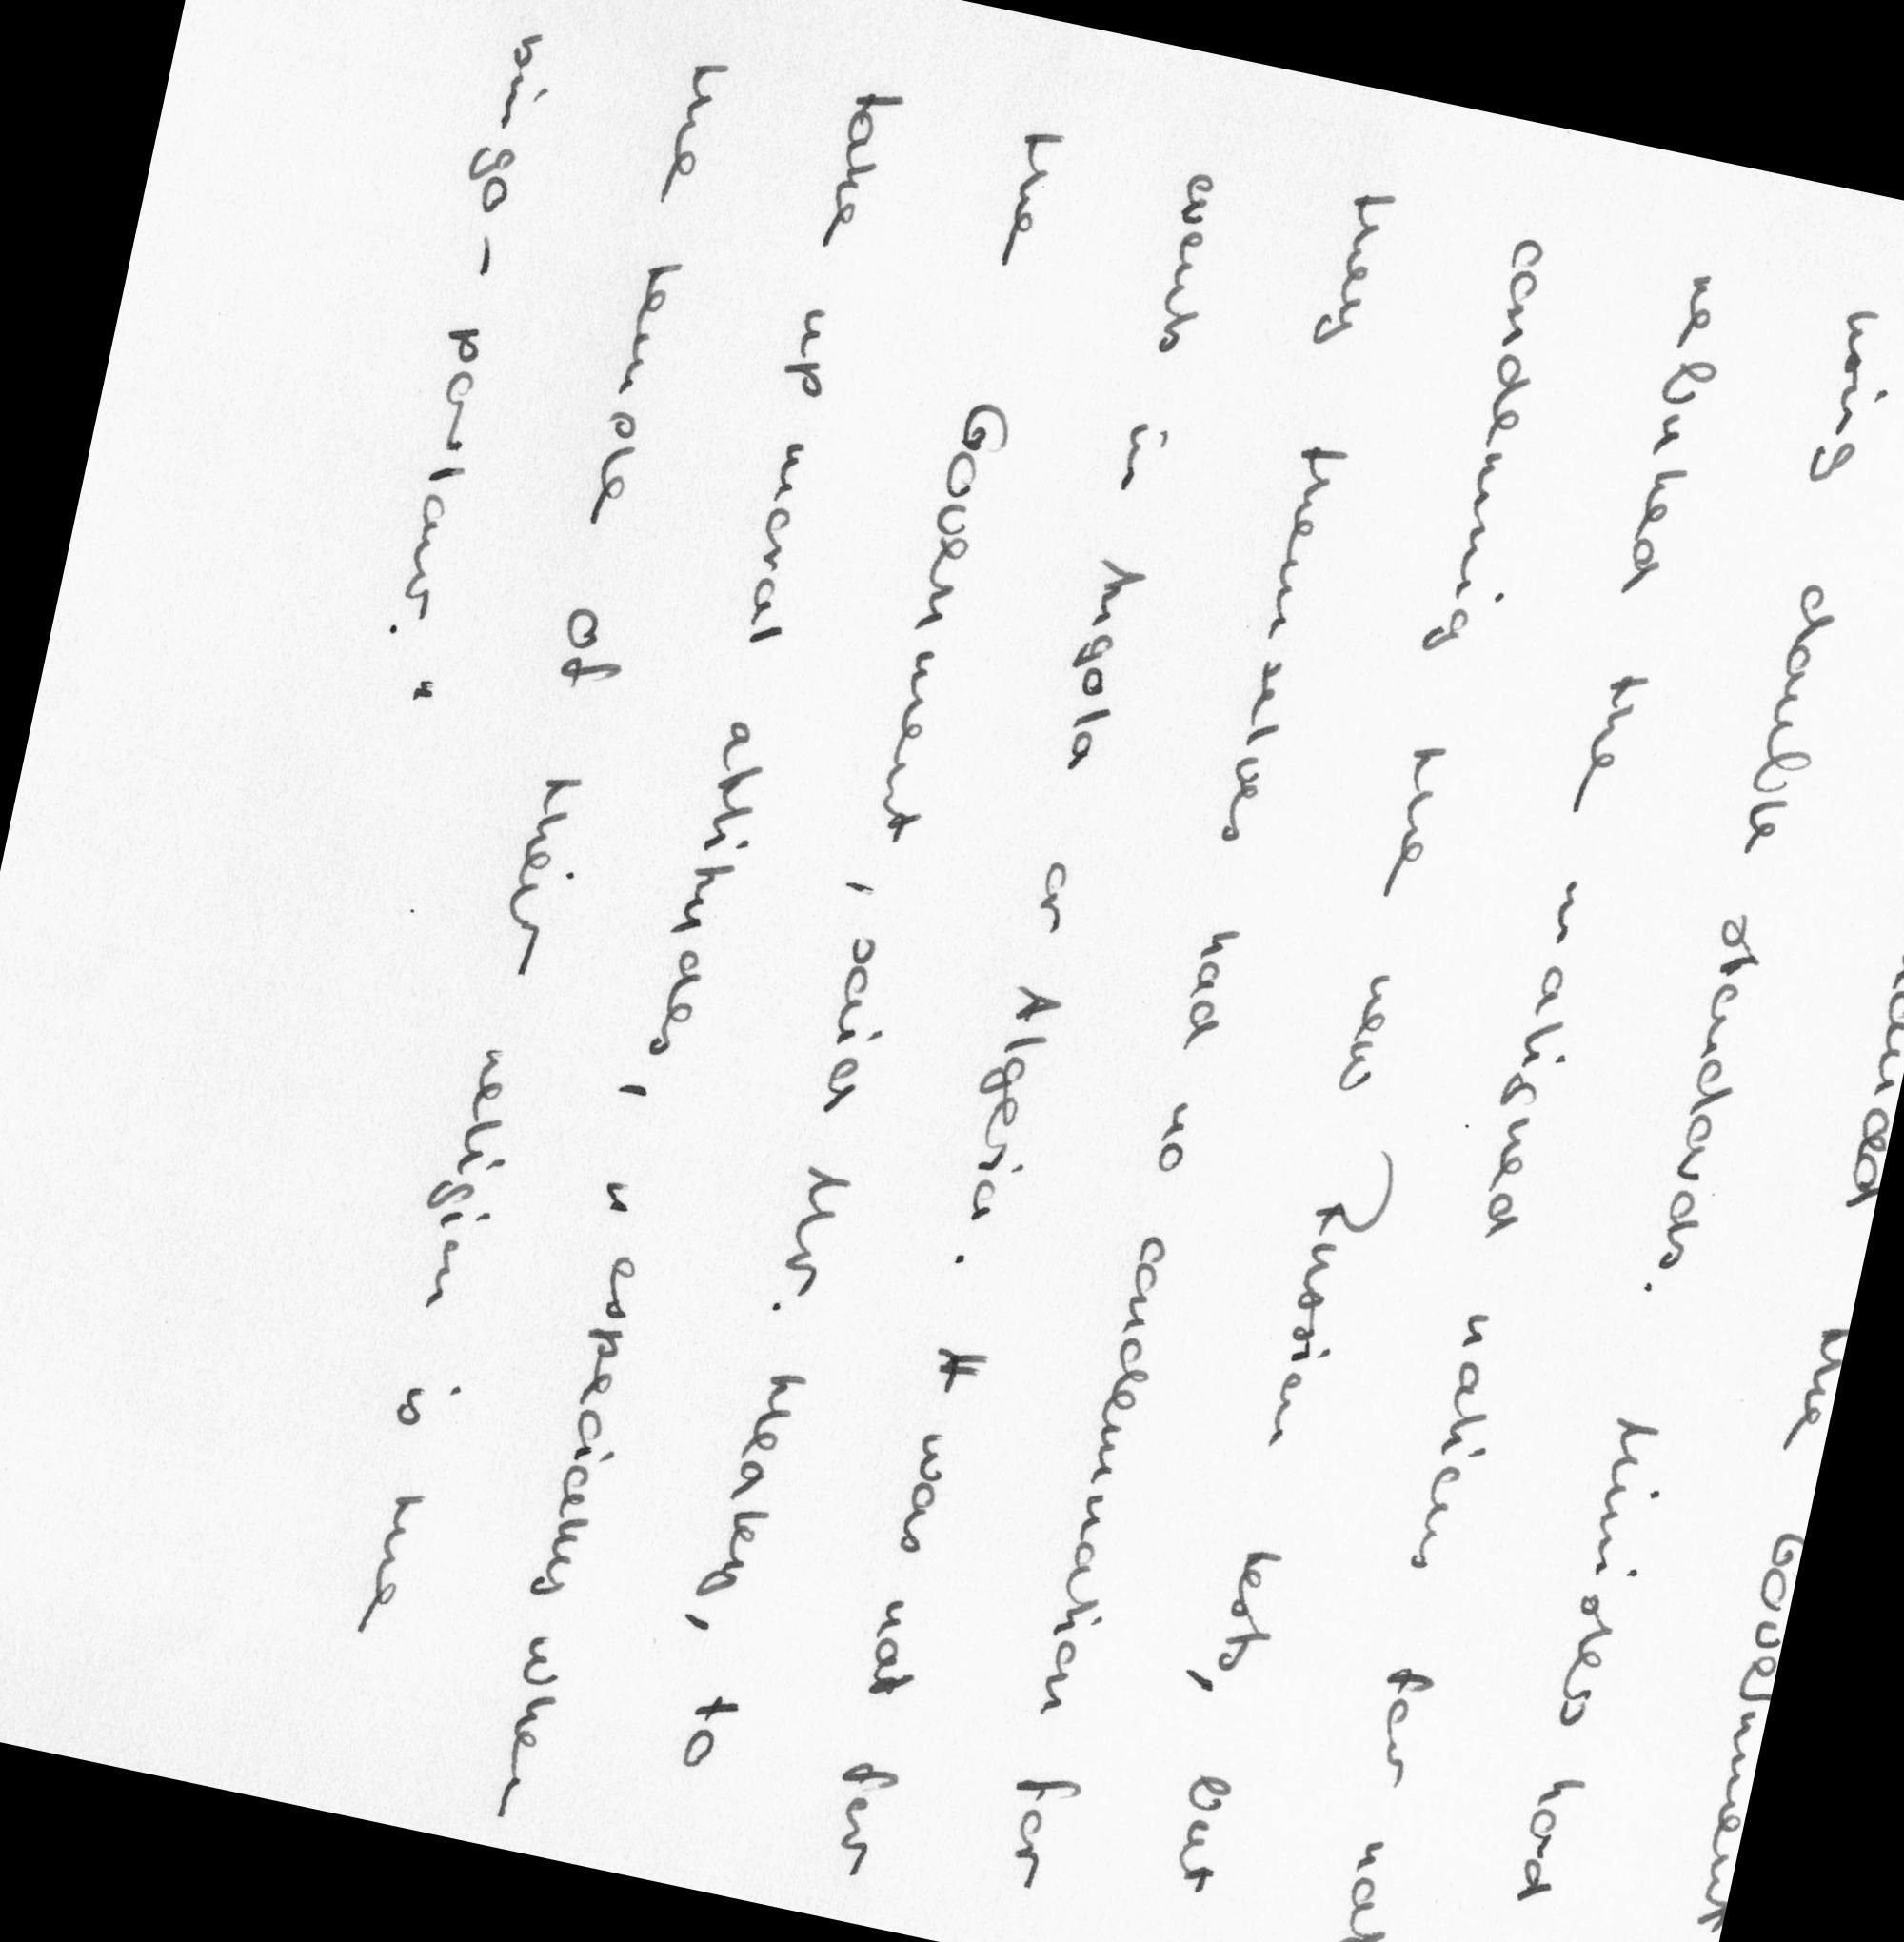 the Government
using double standards. Ministers had
rebuked the unaligned nations for not
condemning the new Russian tests, but
they themselves had no condemnation for
events in Angola or Algeria. It was not for
the Government, said Mr. Healey, to
take up moral attitudes, "especially when
the temple of their religion is the
bingo-parlour."